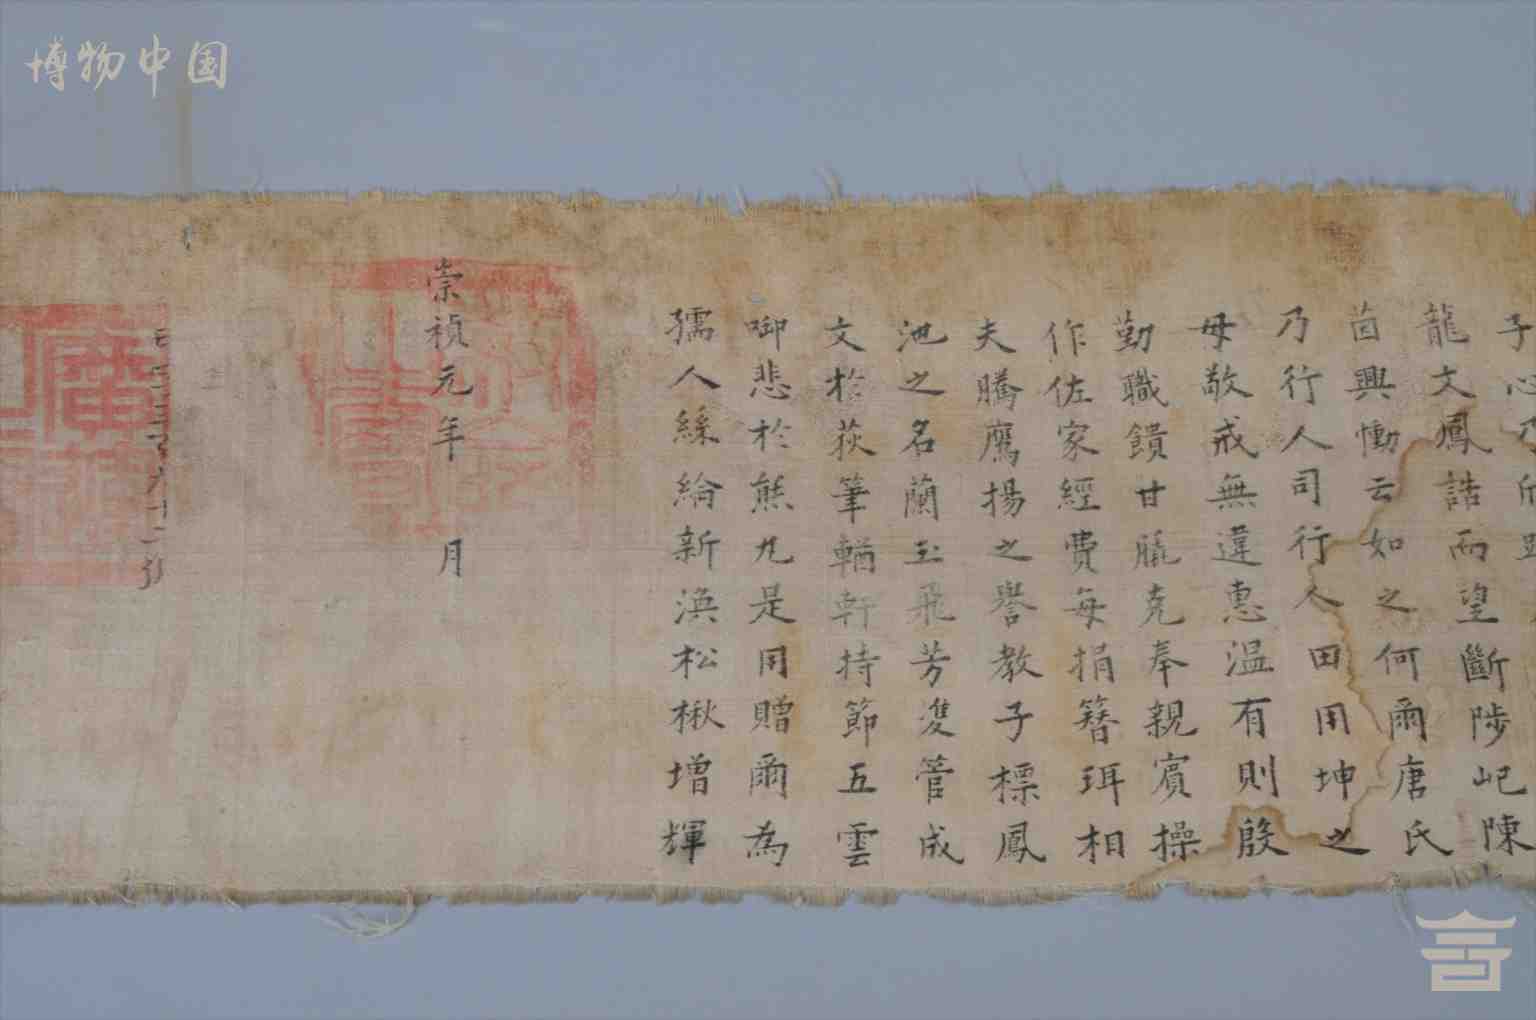 博物中国
子心乃
龍文鳳誥而望斷陟屺陳
茵興慟云如之何爾唐氏
乃行人司行人田用坤之
母敬戒無違惠温有則殷
勤職饋甘毻克奉親賓操
作佐家經費每捐簪珥相
夫騰鷹揚之譽教子標鳳
池之名蘭玉飛芳雙管成
文於荻筆輶軒持節五雲
啣悲於熊丸是用贈爾為
孺人綵綸新渙松楸增輝
崇禎元年 月